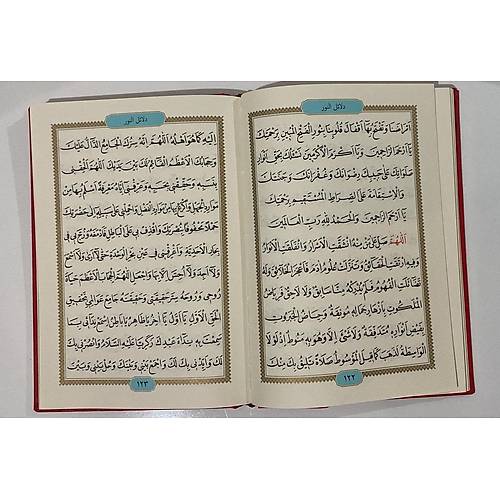 دلائل النور
أمراضنا وتفتح بها أقفال قلوبنا بنور الفتح المبين برحمتك
يا أرحم الراحمين ويا أكرم الأكرمين نسئلك بحق أنوار
صلواتك على حبيبك رضوانك وغفرانك وجنتك
والاستقامة على الصراط المستقيم برحمتك
يا أرحم الراحمين والحمد لله رب العالمين
اللهم صل على من منه انشقت الأسرار وانفلقت الأنوار
وفيه ارتقت الحقائق وتنزلت علوم آدم فأعجز الخلائق وله
تضاءلت الفهوم فلم يدركه منا سابق ولا لاحق فرياض
الملكوت بزهر جماله مونقة وحياض الجبروت
بفيض أنواره متدفقة ولا شئ إلا وهو به منوط إذ لولا
الواسطة لذهب كما قيل الموسوط صلاة تليق بك منك
١٢٢
دلائل النور
إليه كما هو أهله اللهم إنه سرك الجامع الدال عليك
وحجابك الأعظم القائم لك بين يديك اللهم ألحقني
بنسبه وحققني بحسبه وعرفني إياه معرفة أسلم بها من
موارد الجهل وأكرع بها من موارد الفضل واحملني على سبيله إلى حضرتك
حملا محفوفا بنصرتك واقذف بي على الباطل فأدمغه وزج بي في
بحار الأحدية وأغرقني في عين بحر الوحدة حتى لا أرى ولا أسمع
ولا أجد ولا أحس إلا بها واجعل اللهم الحجاب الأعظم حياة
روحي وروحه سر حقيقتي وحقيقته جامع عوالمي بتحقيق
الحق الأول يا أول يا آخر يا ظاهر يا باطن اسمع ندائي بما
سمعت به نداء عبدك زكريا عليه السلام وانصرني بك
لك وأيدني بك لك واجمع بيني وبينك وحل بيني وبين
١٢٣